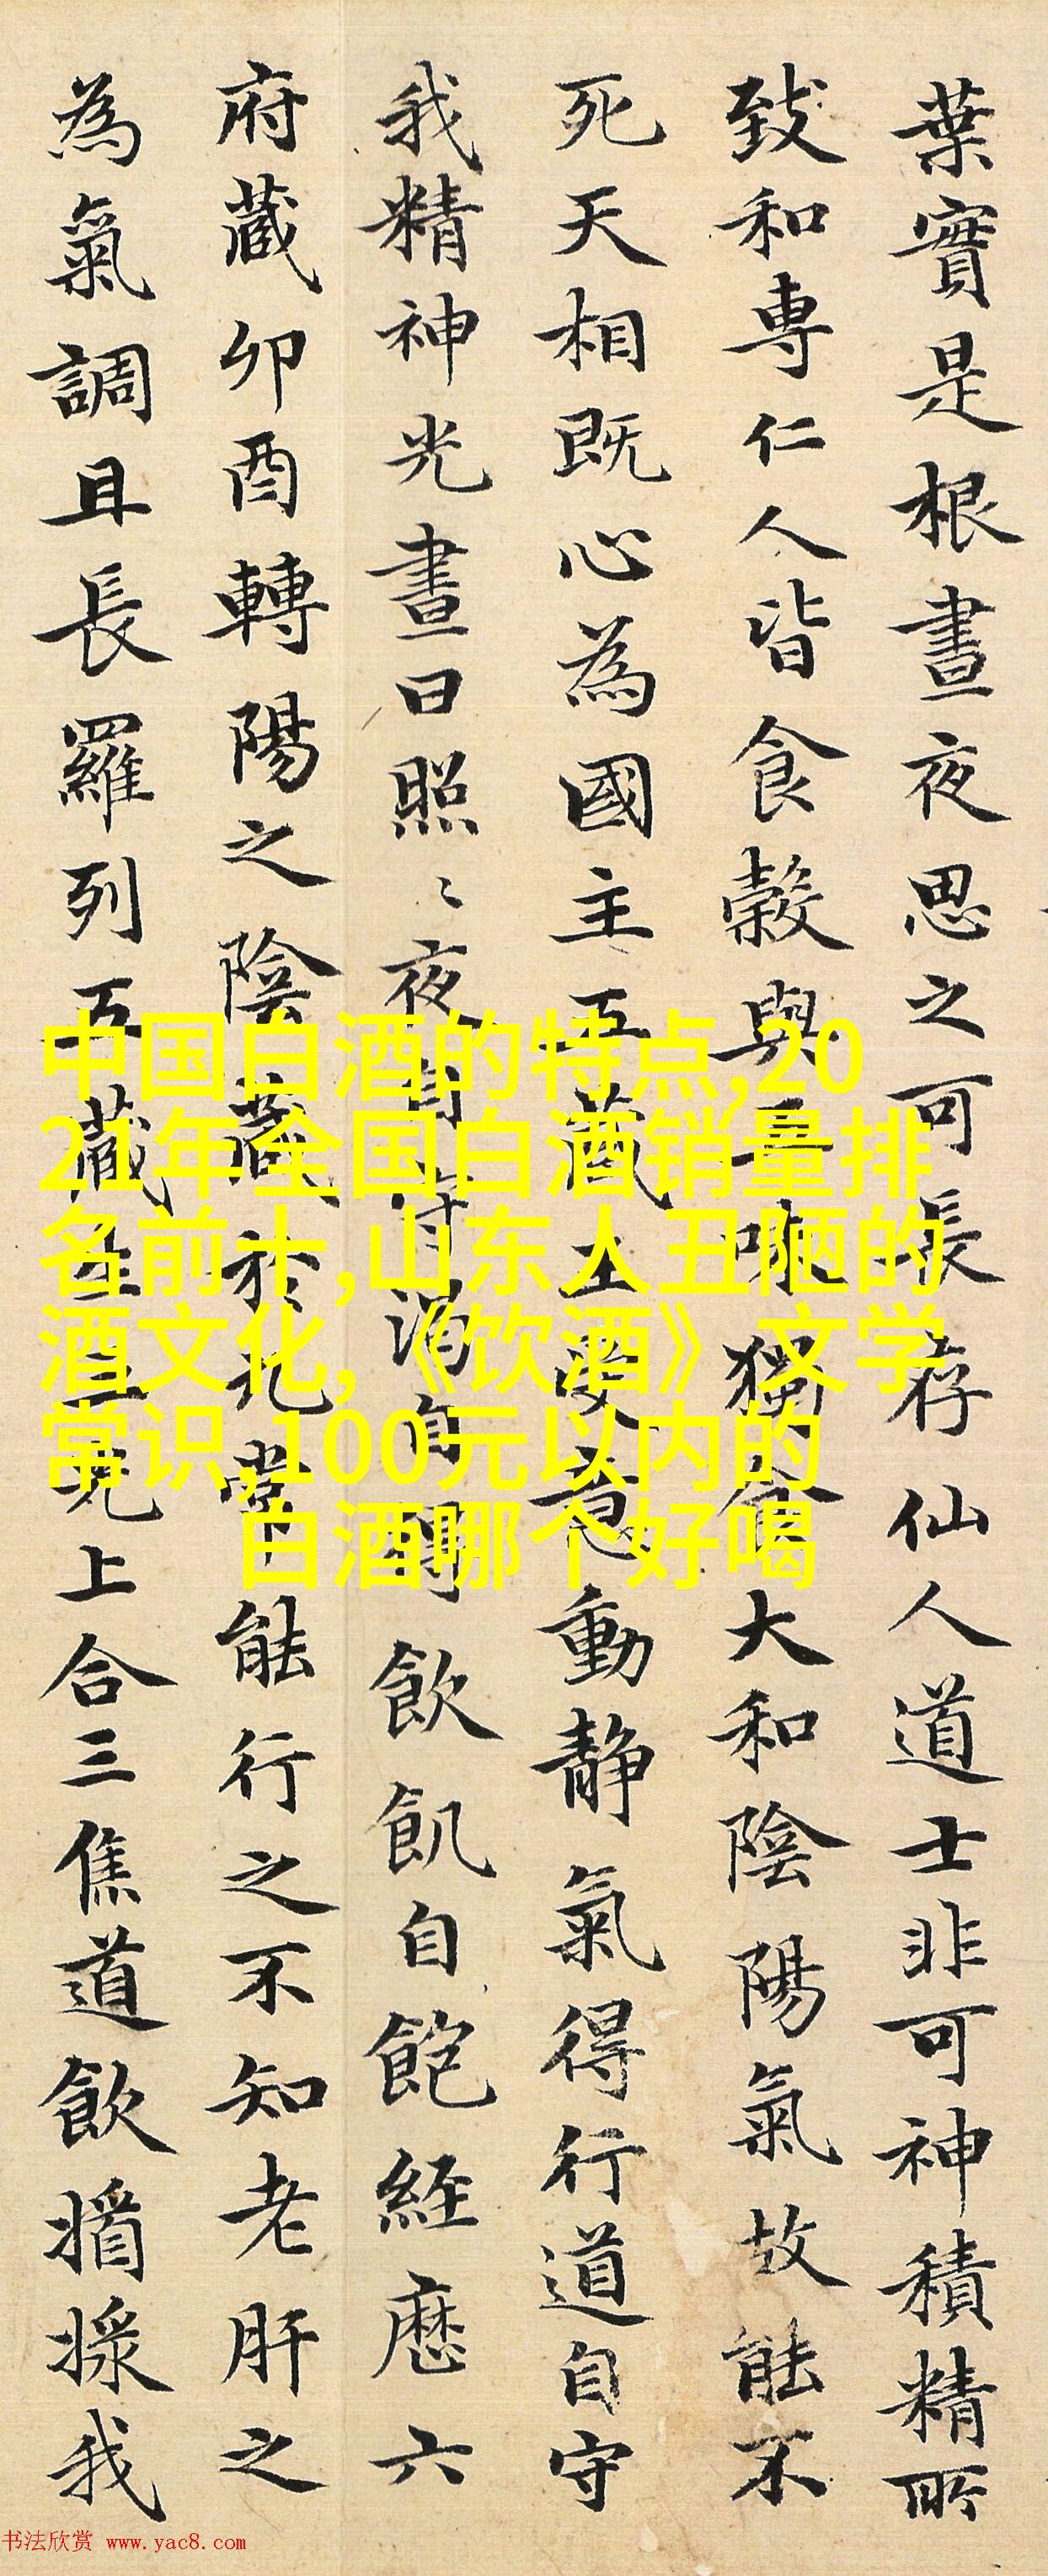 葉實是根晝夜思之可長存仙人道士非可神積精所
致和專仁人皆食穀與五味獨食大和陰陽氣故能不
死天相既心為國主五藏王受意動靜氣得行道自守
我精神光晝日照〻夜自守渴自得飲飢自飽經歷六
府藏卯酉轉陽之陰藏於九常能行之不知老肝之
為氣調且長羅列五藏生三光上合三焦道飲漿我
中国白酒的特点,20
21年全国白酒销量排
名前十,山东人丑陋的
酒文化,《饮酒》文学
常识,100元以内的
白酒哪个好喝
书法欣赏 www.yac8.com